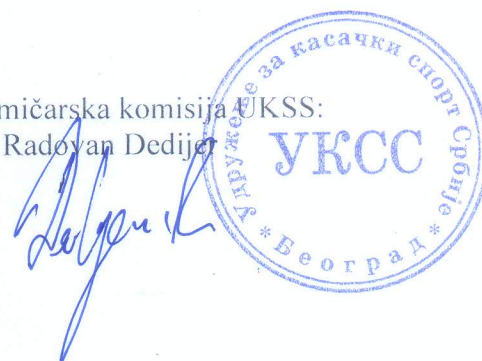 mičarska komisija UKSS:
Radovan Dedijer
Удружење за касачки спорт Србије
УКСС
* Београд *